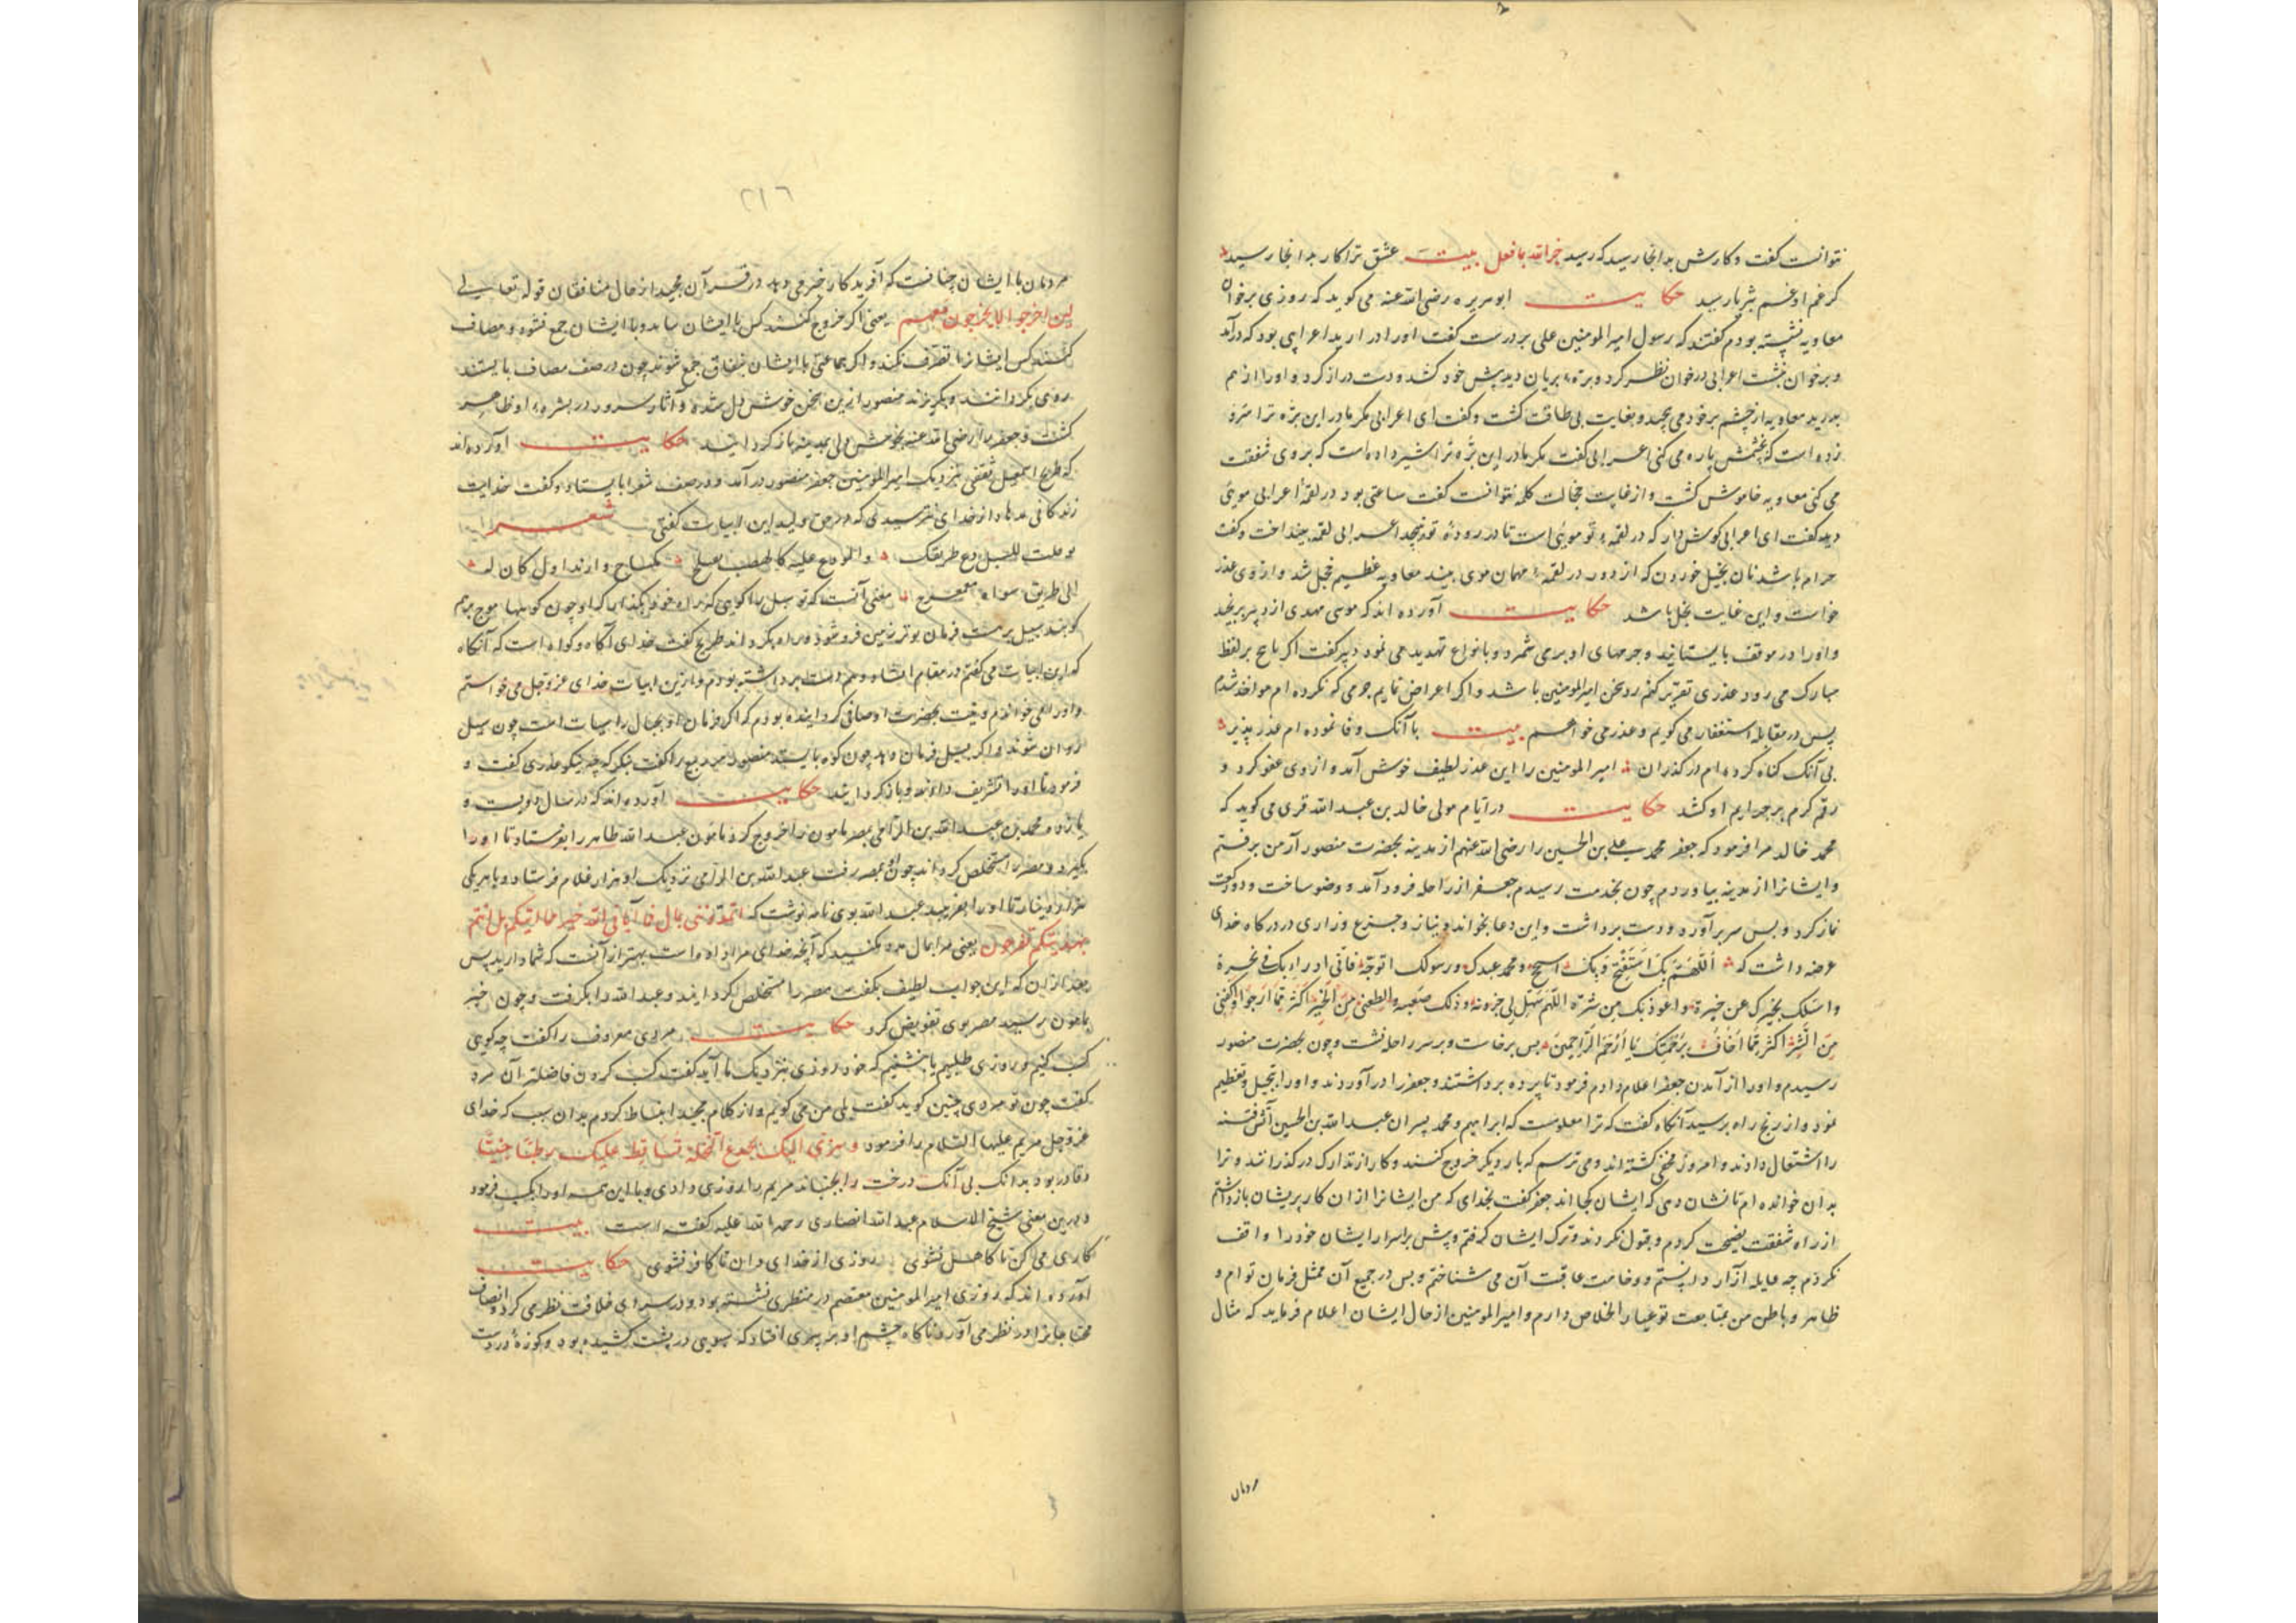 نتوانست گفت و کارش بدانجا رسید که رسید جزاه الله بما فعل بیت عشق ترا کار بدانجا رسید
کز غم او غم بثریا رسید حکایت ابوهریره رضی الله عنه می کوید که روزی بر خوان
معاویه نشسته بودم گفتند که رسول امیرالمومنین علی بر درست گفت او را در آرید اعرابی بود که درآمد
و بر خوان بنشست اعرابی در خوان نظر کرد و بره بریان دید پیش خود کشید و دست دراز کرد و او را از هم
بدرید معاویه از خشم بر خود می پیچید و بغایت بی طاقت گشت و گفت ای اعرابی مکر مادر این بره ترا سرو
زده است که بخشمش پاره می کنی اعرابی گفت مکر مادر این بره ترا شیر داده است که بر وی شفقت
می کنی معاویه خاموش گشت و از غایت خجالت کلمه نتوانست گفت ساعتی بود در لقمه اعرابی مویی
دید گفت ای اعرابی گوش دار که در لقمه تو مویی است تا در روده تو نپیچد اعرابی لقمه بینداخت و گفت
حرام باشد نان بخیل خوردن که از دور در لقمه مهمان موی بیند معاویه عظیم خجل شد و از وی عذر
خواست و این غایت بخل باشد حکایت آورده اند که موسی مهدی از دبیر برنجید
و او را در موقف بایستانید و جرمهای او برمی شمرد و بانواع تهدید می نمود دبیر گفت اکر بانچ بر لفظ
مبارک می رود عذری تقریر کنم رد سخن امیرالمومنین باشد و اکر اعراض نمایم جرمی که نکرده ام مواخذ شوم
پس در مقابله استغفار می کویم و عذر می خواهم بیت با آنک وفا نموده ام عذر پذیر
بی آنک کناه کرده ام در کذران امیرالمومنین را این عذر لطیف خوش آمد و از وی عفو کرد و
رقم کرم بر جرایم او کشید حکایت در ایام مولی خالد بن عبدالله قری می کوید که
محمد خالد مرا فرمود که جعفر محمد بن علی بن الحسین را رضی الله عنهم از مدینه بحضرت منصور آر من برفتم
و ایشانرا از مدینه بیاوردم چون بخدمت رسیدم جعفر از راحله فرود آمد و وضو ساخت و دو رکعت
نماز کرد و پس سر برآورد و دست برداشت و این دعا بخواند و نیاز و جزع و زاری در درکاه خدای
عرضه داشت که اللهم بک استفتح و بک استنجح و محمد عبدک و رسولک اتوجه فانی ادراء بک فی نحره
و اسئلک بخیرک عن خیره و اعوذ بک من شره اللهم سهل لی حزونه و ذلک صعبه و اعطنی من الخیر اکثر مما ارجو و اکفنی
من الشر اکثر مما اخاف برحمتک یا ارحم الراحمین پس برخاست و بر سر راحله نشست و چون بحضرت منصور
رسیدم و او را از آمدن جعفر اعلام دادم فرمود تا پرده برداشتند و جعفر را درآوردند و او را تبجیل و تعظیم
نمود و از رنج راه پرسید آنکاه گفت که ترا معلومست که ابراهیم و محمد پسران عبدالله بن الحسین آتش فتنه
را اشتعال دادند و امروز مخفی گشته اند و می ترسم که بار دیگر خروج کنند و کار از تدارک درکذرانند و ترا
بدان خوانده ام تا نشان دهی که ایشان کجا اند جعفر گفت بخدای که من ایشانرا از ان کار پریشان باز داشتم
از راه شفقت نصیحت کردم و قبول نکردند و ترک ایشان گرفتم و بیش بر اسرار ایشان خود را واقف
نکردم چه غایله آزار دانستم و وخامت عاقبت آن می شناختم و پس در جمیع آن ممثل فرمان توام و
ظاهر و باطن من بمتابعت تو عیار اخلاص دارم و امیرالمومنین از حال ایشان اعلام فرماید که مثال
مردمان
۲۱۶
مردمان با ایشان چنانست که آفریدکار خبر می دهد در قرآن مجید از حال منافقان قوله تعالی
لین اخرجوا لا یخرجون معهم یعنی اکر خروج کنند کس با ایشان نیاید و با ایشان جمع نشود و مصاف
کنند کس ایشانرا نصرت نکند و اکر جماعتی با ایشان بنفاق جمع شوند چون در صف مصاف بایستند
روی بکردانند و بکریزند منصور ازین سخن خوش دل شد و آثار سرور در بشره او ظاهر
گشت و جعفر را رضی الله عنه بخوش دلی بمدینه باز کردانید حکایت آورده اند
که طریح اسمعیل ثقفی نزدیک امیرالمومنین جعفر منصور درآمد و در صف شعرا بایستاد و گفت خدایت
زندکانی مدهاد از خدای نترسیدی که در حق ولید این ابیات گفتی شعر
لو قلت للسیل دع طریقک والموج علیه کالهضب یعتلج لساخ وارتد او لکان له
الی طریق سواه منعرج معنی آنست که تو سیل را کویی که راه خود بکذار اکر او چون کوهها موج بر هم
کوبد سیل بر حسب فرمان تو بزمین فرو شود و راه بکرداند طریح گفت خدای آکاه و کواه است که آنکاه
که این ابیات می گفتم در مقام انشا هر دو دست برداشته بودم و ازین ابیات خدای عزوجل می خواستم
و او را می خواندم و نیت بحضرت او صافی کردانیده بودم که اکر فرمان او بجبال راسیات است چون سیل
روان شوند و اکر بسیل فرمان دهد چون کوه بایستد منصور ربیع را گفت بنکر که چه نیکو عذری گفت و
فرمود تا او را تشریف دادند و باز کردانیدند حکایت آورده اند که در سال دویست و
یازده محمد بن عبدالله بن الرامی بمصر مامون را خروج کرد مامون عبدالله طاهر را بفرستاد تا او را
بکیرد و مصر را مستخلص کرداند چون بمصر رفت عبدالله بن الرامی نزدیک او هزار غلام فرستاد و با هر یکی
هزار دینار تا او را بفریبد عبدالله بوی نامه نوشت که اتمدونننی بمال فما آتانی الله خیر مما اتیکم بل انتم
بهدیتکم تفرحون یعنی مرا بمال مدد میکنید که آنچه خدای مرا داده است بهتر از آنست که شما دارید پس
بعد از ان که این جواب لطیف بگفت مصر را مستخلص کردانید و عبدالله را بکرفت و چون خبر
بمامون رسید مصر بوی تفویض کرد حکایت مردی معروف را گفت چه کویی
کسب کنیم و روزی طلبیم یا بنشینیم که خود روزی بنزدیک ما آید گفت کسب کردن فاضلتر آن مرد
گفت چون تو مردی چنین کوید گفت بلی من می کویم و از کلام مجید استنباط کردم بدان سبب که خدای
عزوجل مریم علیها السلام را فرمود وهزی الیک بجذع النخلة تساقط علیک رطبا جنیا
و قادر بود بدانک بی آنک درخت را بجنباند مریم را روزی دادی و با این همه او را بکسب فرمود
و درین معنی شیخ الاسلام عبدالله انصاری رحمه الله علیه گفته است بیت
کاری می کن تا کاهل نشوی روزی از خدای دان تا کافر نشوی حکایت
آورده اند که روزی امیرالمومنین معتصم در منظری نشسته بود و در سرای خلافت نظر می کرد و انصاف
محتاجان را در نظر می آورد ناکاه چشم او بر پیری افتاد که سبویی در پشت کشیده بود و کوزه در دست